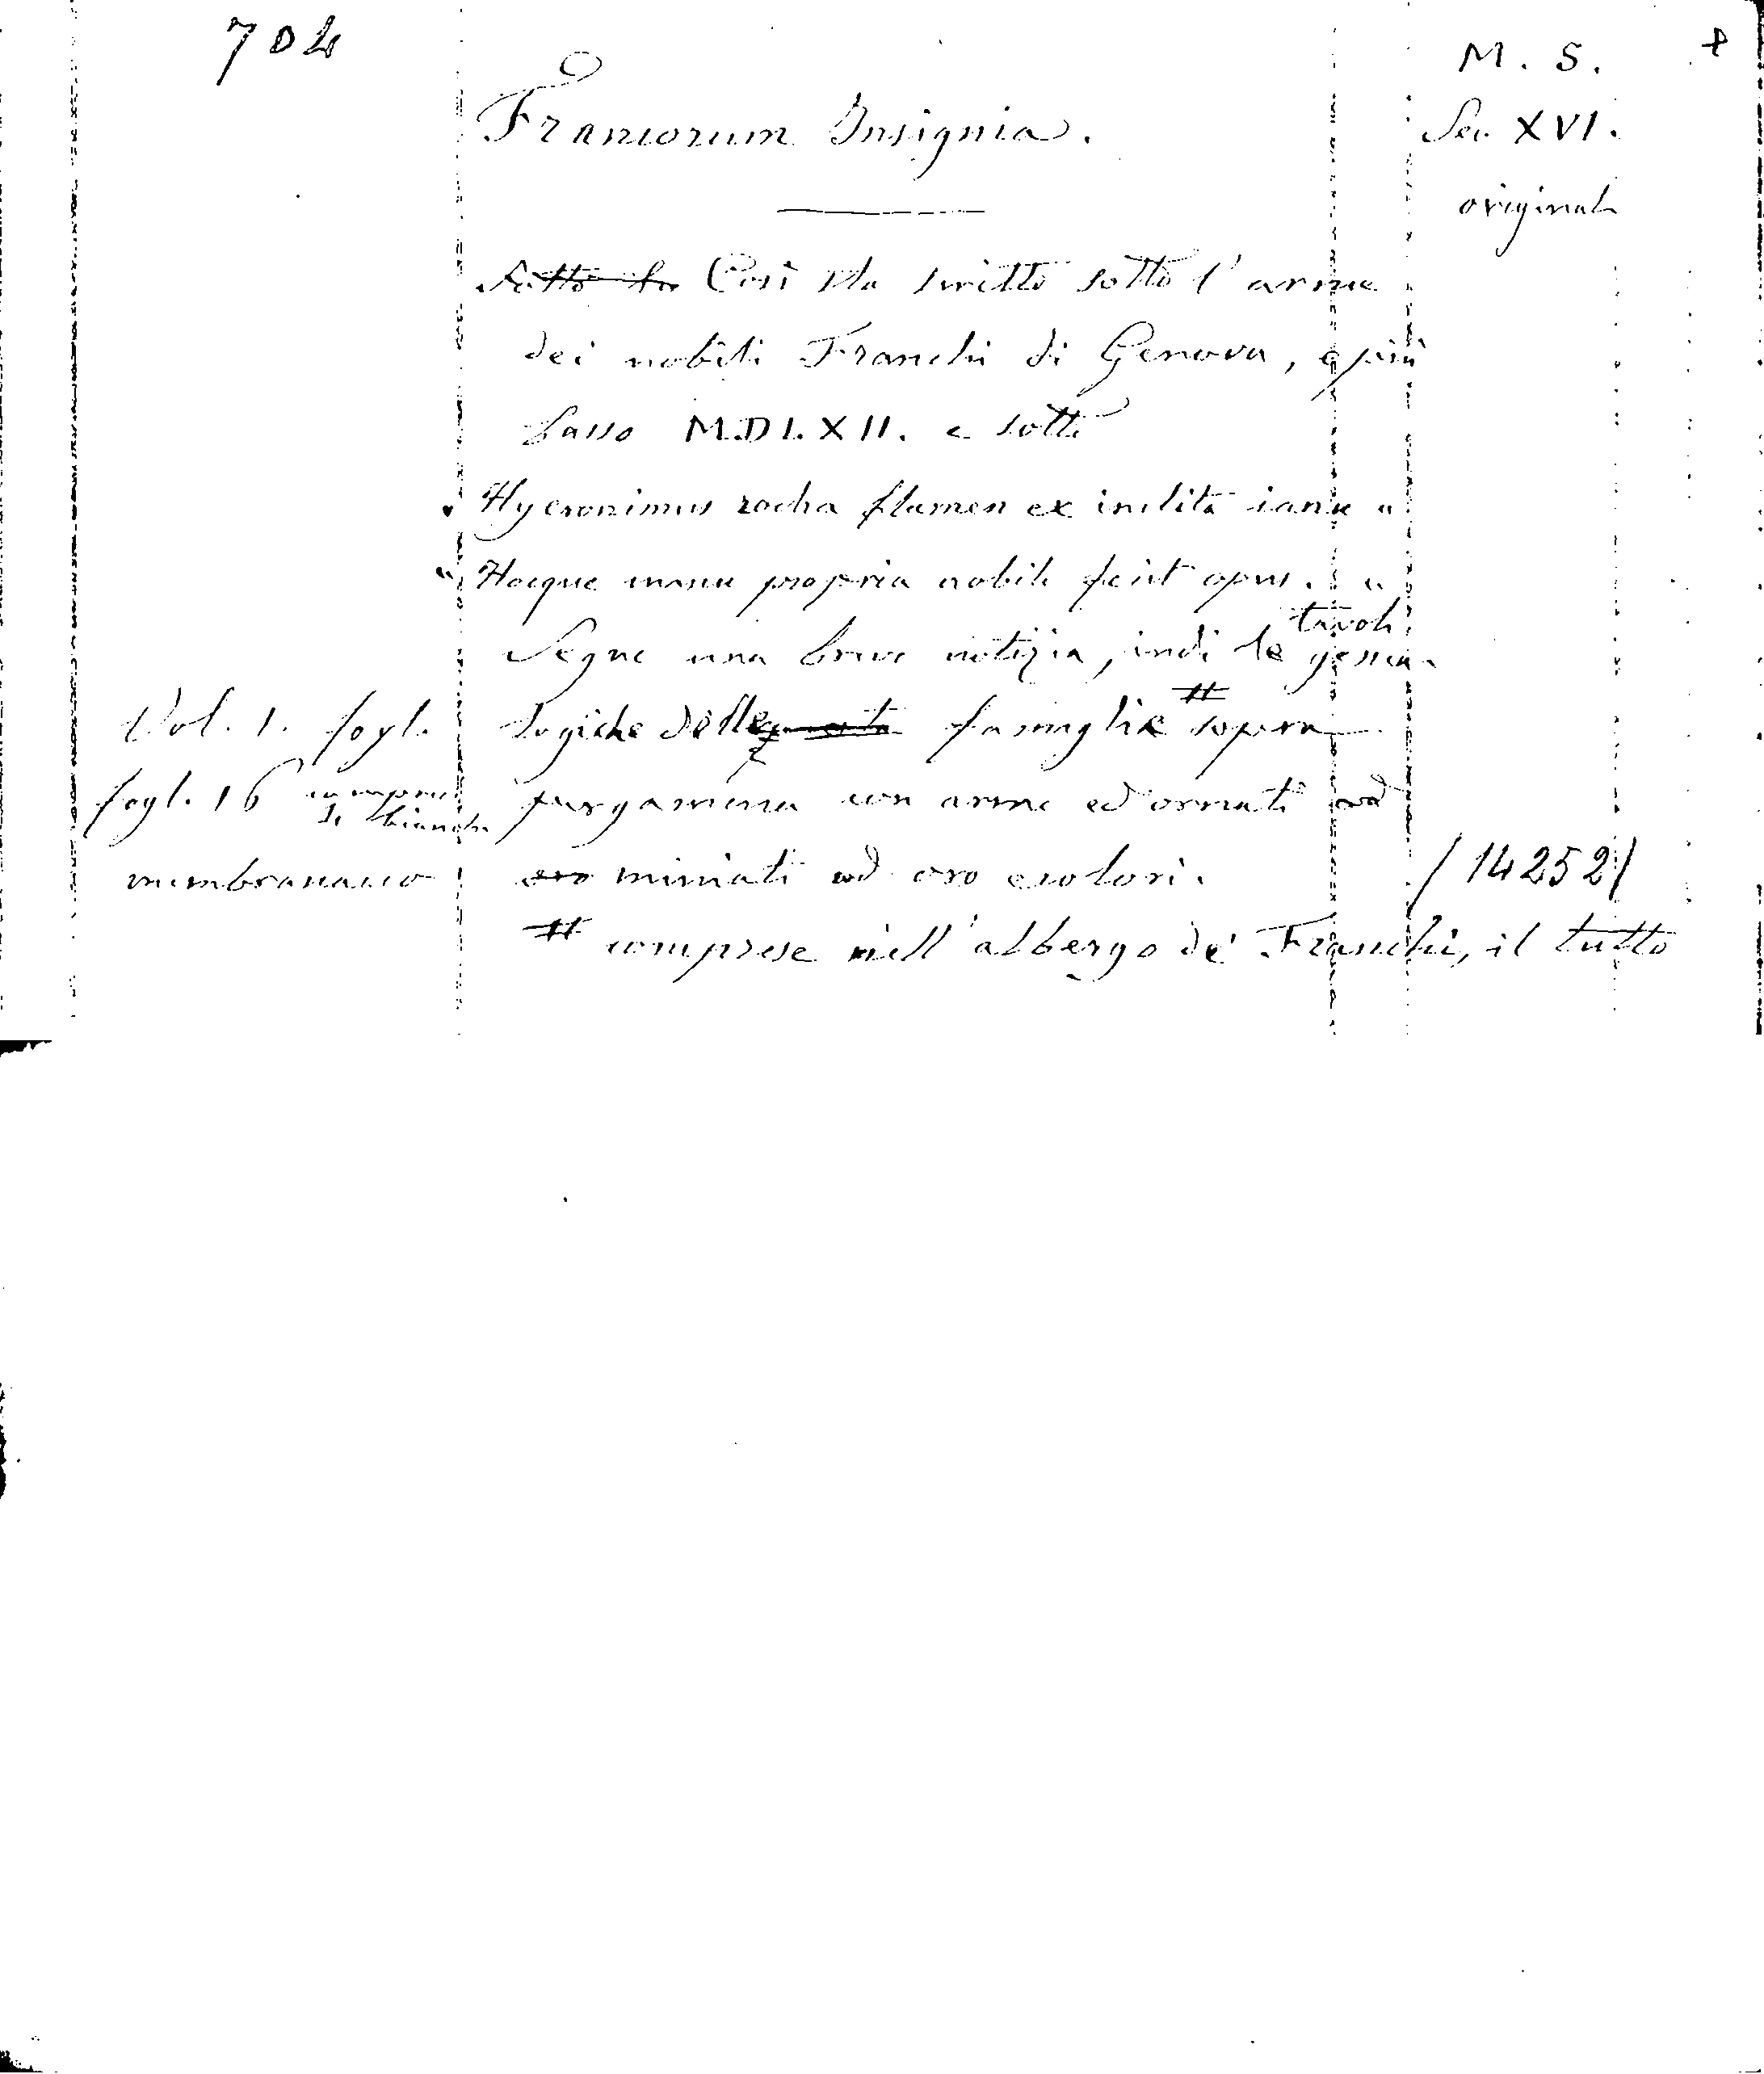 704
M. S.
Francorum Insignia.
Sec. XVI.
originale
Sotto la Così sta scritto sotto l'arme
dei nobili Franchi di Genova, e più
basso M.D.LXII. e sotto
" Hyeronimus rocha flamen ex inclita ianue "
" Hocque manu propria nobile fecit opus. "
tavole
Segue una breve notizia, indi le genea-
Vol. 1. fogl.
logiche delle famiglie # sopra
fogl. 16 compresi
i bianchi
pergamena con arme ed ornati ad
membranaceo
oro miniati ad oro e colori.
/ 14252 /
# comprese nell'albergo de' Franchi, il tutto